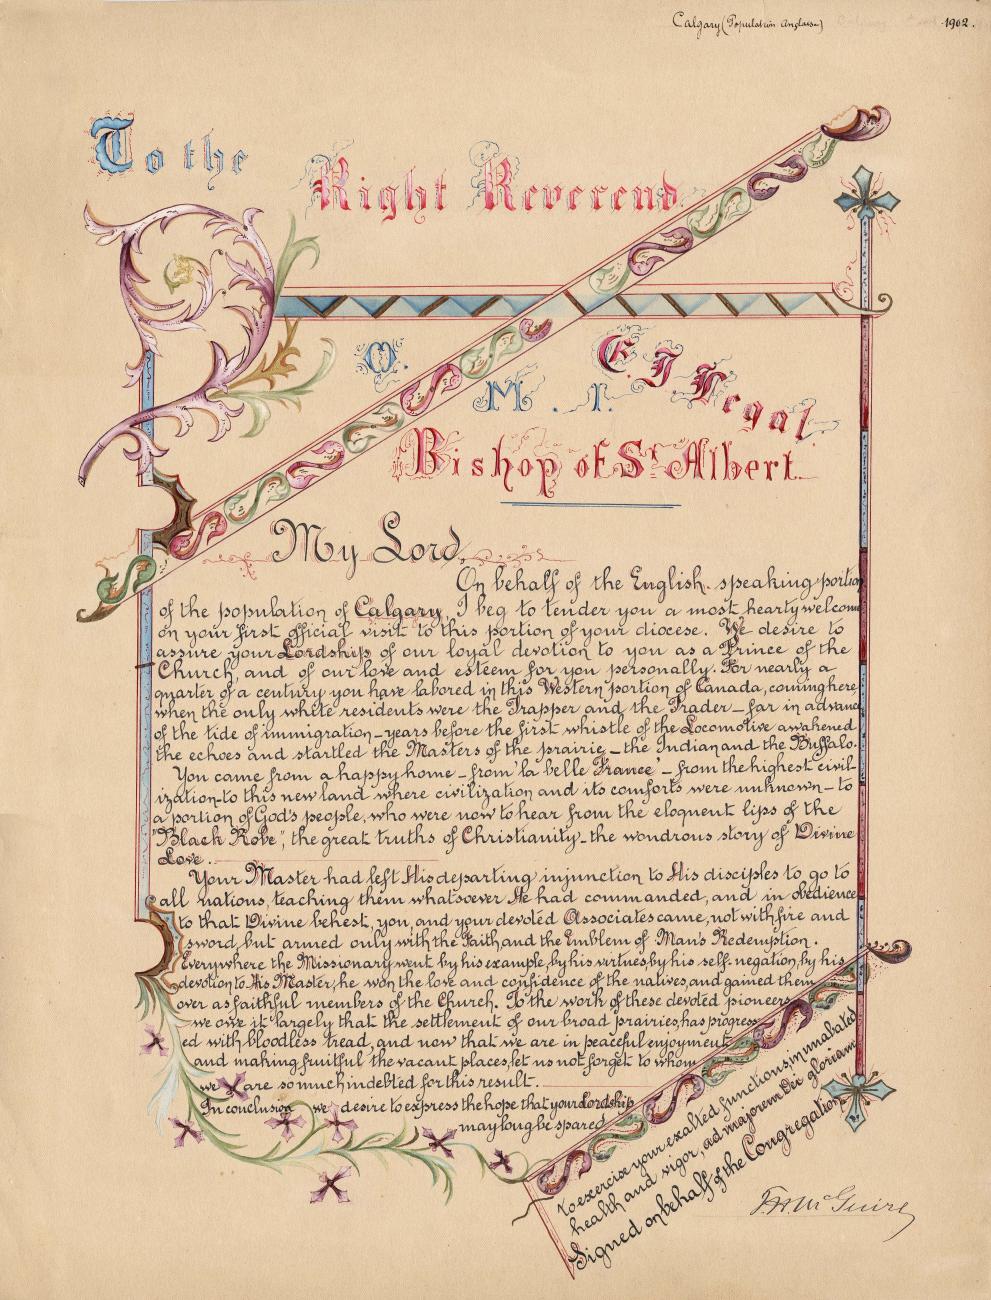 Calgary (Population anglaise) 1902.
To the
Right Reverend
O. M. I. E. J. Legal
Bishop of St Albert
My Lord,
On behalf of the English-speaking portion
of the population of Calgary, I beg to tender you a most hearty welcome
on your first official visit to this portion of your diocese. We desire to
assure your Lordship of our loyal devotion to you as a Prince of the
Church, and of our love and esteem for you personally. For nearly a
quarter of a century you have labored in this Western portion of Canada, coming here
when the only white residents were the Trapper and the Trader – far in advance
of the tide of immigration – years before the first whistle of the Locomotive awakened
the echoes and startled the Masters of the prairie – the Indian and the Buffalo.
You came from a happy home – from 'la belle France' – from the highest civil-
ization – to this new land where civilization and its comforts were unknown – to
a portion of God's people, who were now to hear from the eloquent lips of the
"Black Robe", the great truths of Christianity – the wondrous story of Divine
Love.
Your Master had left His departing injunction to His disciples to go to
all nations, teaching them whatsoever He had commanded, and in obedience
to that Divine behest, you, and your devoted Associates came, not with fire and
sword, but armed only with the Faith, and the Emblem of Man's Redemption.
Everywhere the Missionary went by his example, by his virtues, by his self-negation, by his
devotion to His Master, he won the love and confidence of the natives, and gained them
over as faithful members of the Church. To the work of these devoted pioneers
we owe it largely that the settlement of our broad prairies, has progress-
ed with bloodless tread, and now that we are in peaceful enjoyment
and making fruitful the vacant places, let us not forget to whom
we are so much indebted for this result.
In conclusion we desire to express the hope that your Lordship
may long be spared
to exercise your exalted functions, in unabated
health and vigor, ad majorem Dei gloriam
Signed on behalf of the Congregation,
McGuire